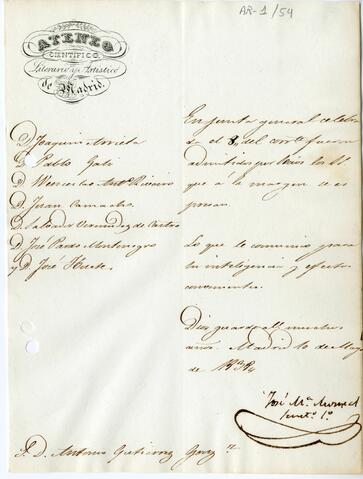 AR-1/54
ATENEO
CIENTÍFICO,
Literario y Artístico
de Madrid.
D Joaquin Arrieta
D Pablo Gali
D Wenceslao Antº
D. Juan Camacho
D. Salvador Bermudez de Castro
D. José Pardo Montenegro
y D. José Huete.
En junta general celebra
da el 8, del corrte fueron
admitidos por Socios los SS
que á la margen se es
presan.
Lo que le comunico para
su inteligencia y efectos
convenientes.
Dios guarde á V. muchos
años. Madrid 10 de Mayo
de
José Mª
Sectº 1º
S. D. Antonio Gutierrez Gonz